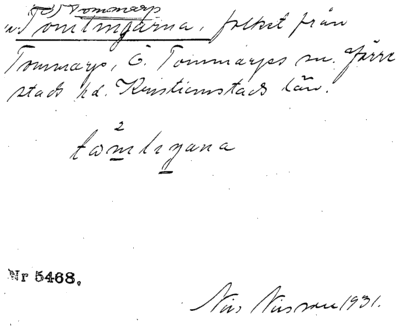 Tommarp
Tomlingarna, folket från
Tommarp, Ö. Tommarps sn. Järre
stads hd. Kristianstads län.
2
Nr 5468.
Nils Nilsson 1931.